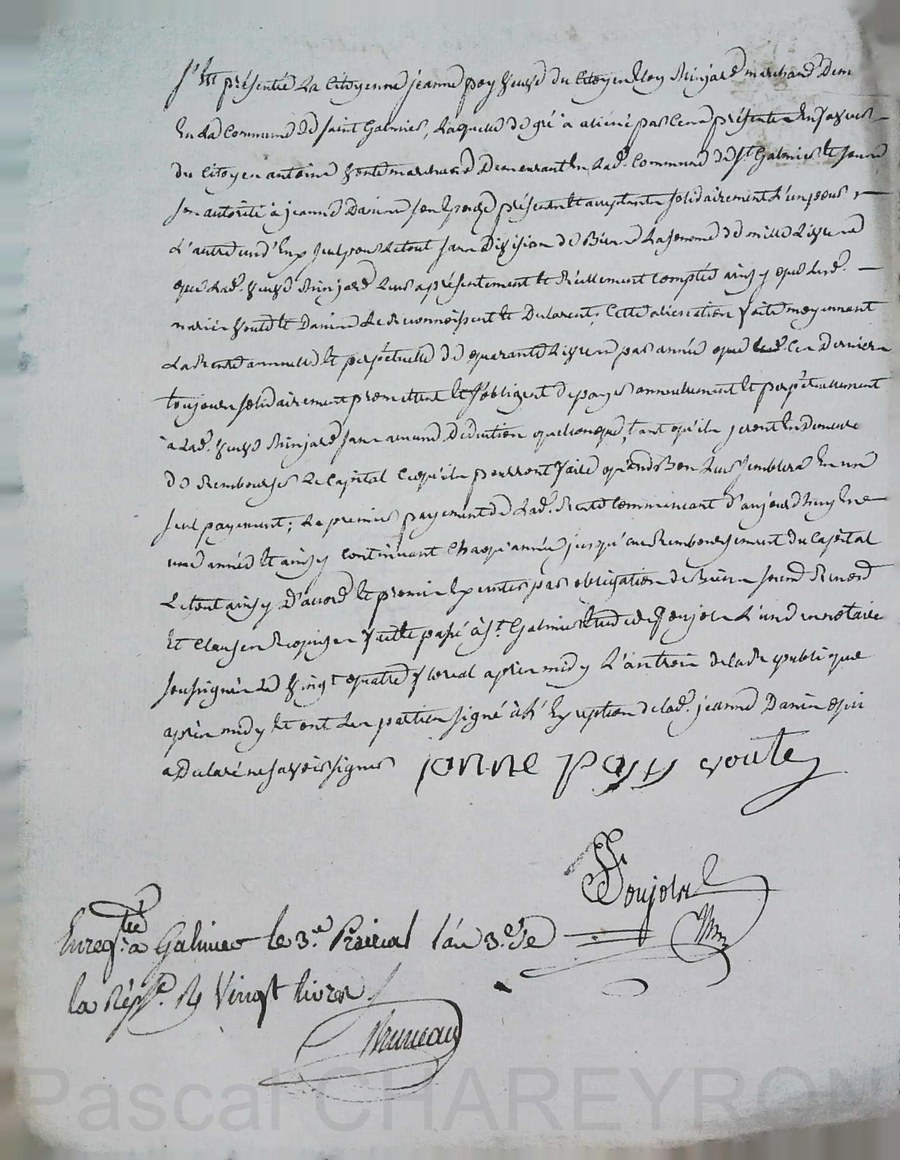 S'est présentée La Citoyenne jeanne poy veuve du Citoyen Eloy Thinjard marchand Dem.
En La Commune de Saint Galmier, Laquelle de gré a aliéné par Cette présente En faveur
du Citoyen antoine voute marchand Demeurant En Lad. Commune de St. Galmier Et sous
son autorité à jeanne Danin son Epouse présents Et acceptants solidairement L'un pour
L'autre un d'Eux seul pour Le tout sans Division de Biens La somme de mille Livres
que Lad. veuve Thinjard Leur a présentement Et Réellement Comptée ainsy que Lesd.
mariés voute Et Danin Le Reconnoissent Et Declarent; Cette aliénation faite moyennant
La Rente annuelle Et perpétuelle de quarante Livres par année que Ces Derniers
toujours solidairement promettent Et s'obligent de payer annuellement Et perpétuellement
à Lad. veuve Thinjard sans aucune Déduction quelconque, tant qu'ils seront En Demeure
de Rembourser Le Capital Ce qu'ils pourront faire quand Bon Leur semblera En un
seul payement; Le premier payement de Lad. Rente Commencant d'aujourd'huy En
une année Et ainsy Continuant Chaque année jusqu'au Remboursement du Capital
Le tout ainsy D'accord Et promis Executer par obligation de Biens
Et Clauses Requises fait Et passé à St. Galmier Etude de Soujol L'un des notaire
soussignés Le vingt quatre floreal après midy L'an trois de La Rep. publique
après midy Et ont Les parties signé à L'Exception de Lad. jeanne Danin qui
a Déclaré ne savoir signer janne poy voute
Soujol
Enregtré. à Galmier le 3.e Prairial l'an 3.e de
la Rép.e R Vingt livres
Bruneau
Pascal CHAREYRON